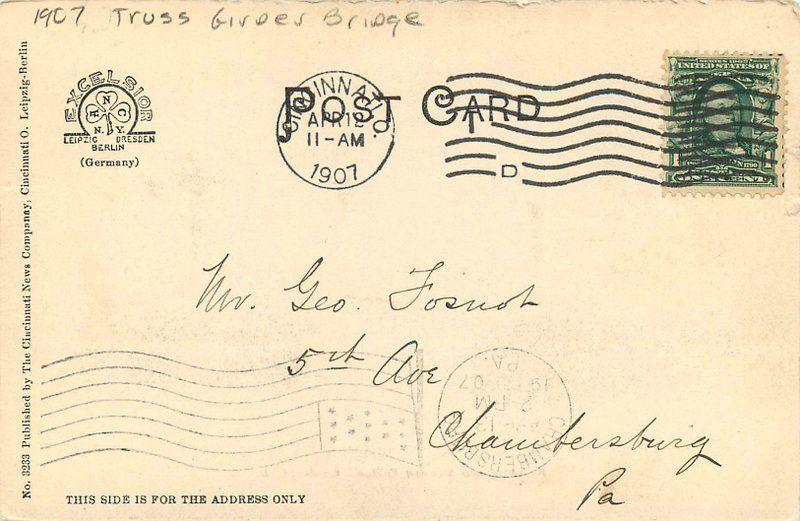 1907 Truss Girder Bridge
No. 3233 Published by The Cincinnati News Compnay, Cincinnati O. Leipzig-Berlin
EXCELSIOR
N
A C
N.Y.
LEIPZIG DRESDEN
BERLIN
(Germany)
POST CARD
CINCINNATI, O.
APR 12
11-AM
1907
D
SERIES 1902
UNITED STATES OF
1790
ONE CENT
Mr. Geo. Fosnot
5th Ave
Chambersburg
Pa
CHAMBERSBURG
PA.
1907
PM
THIS SIDE IS FOR THE ADDRESS ONLY